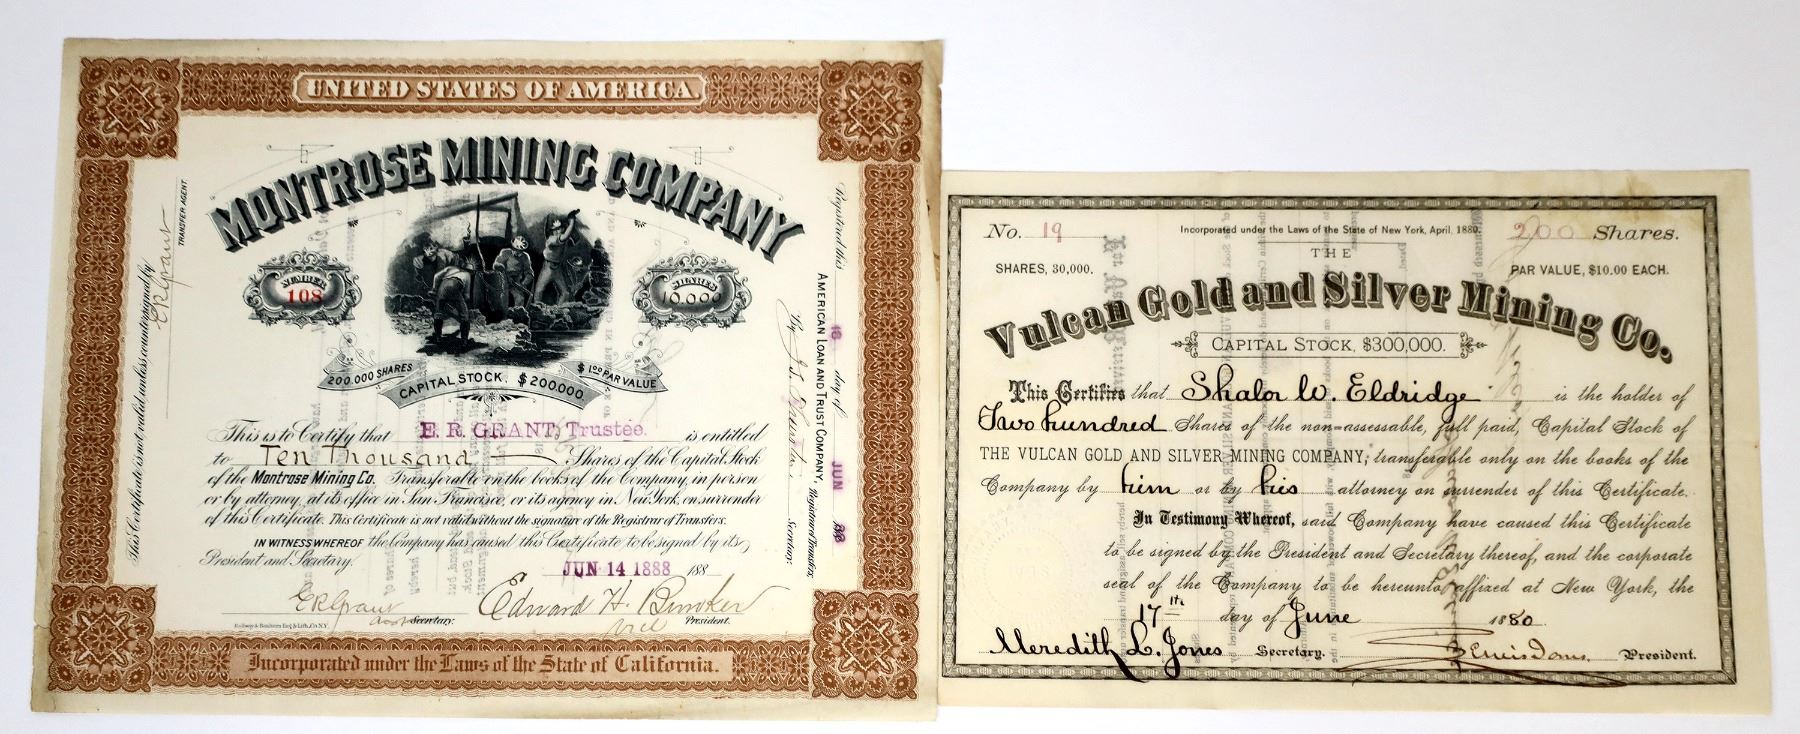 UNITED STATES OF AMERICA.
MONTROSE MINING COMPANY
NUMBER
108
SHARES
10.000
200.000 SHARES
CAPITAL STOCK. $200.000.
$1.00 PAR VALUE
This is to Certify that E. R. GRANT, Trustee. is entitled
to Ten Thousand Shares of the Capital Stock
of the Montrose Mining Co. Transferable on the books of the Company, in person
or by attorney, at its office in San Francisco, or its agency in New York, on surrender
of this Certificate. This Certificate is not valid without the signature of the Registrar of Transfers.
IN WITNESS WHEREOF the Company has caused this Certificate to be signed by its
President and Secretary.
JUN 14 1888 188
E R Grant
asst Secretary.
Edward H.
vice President.
Incorporated under the Laws of the State of California.
This Certificate is not valid unless countersigned by
E R Grant
TRANSFER AGENT.
Registered this 16 day of JUN 88
AMERICAN LOAN AND TRUST COMPANY, Registrar of Transfers,
By
Secretary.
No. 19
Incorporated under the Laws of the State of New York, April, 1880.
200 Shares.
SHARES, 30,000.
THE
PAR VALUE, $10.00 EACH.
Vulcan Gold and Silver Mining Co.
CAPITAL STOCK, $300,000.
This Certifies that Shalor W. Eldridge is the holder of
Two hundred Shares of the non-assessable, full paid, Capital Stock of
THE VULCAN GOLD AND SILVER MINING COMPANY, transferable only on the books of the
Company by him or by his attorney on surrender of this Certificate.
In Testimony Whereof, said Company have caused this Certificate
to be signed by the President and Secretary thereof, and the corporate
seal of the Company to be hereunto affixed at New York, the
17th day of June 1880
Meredith L. Jones Secretary.
President.